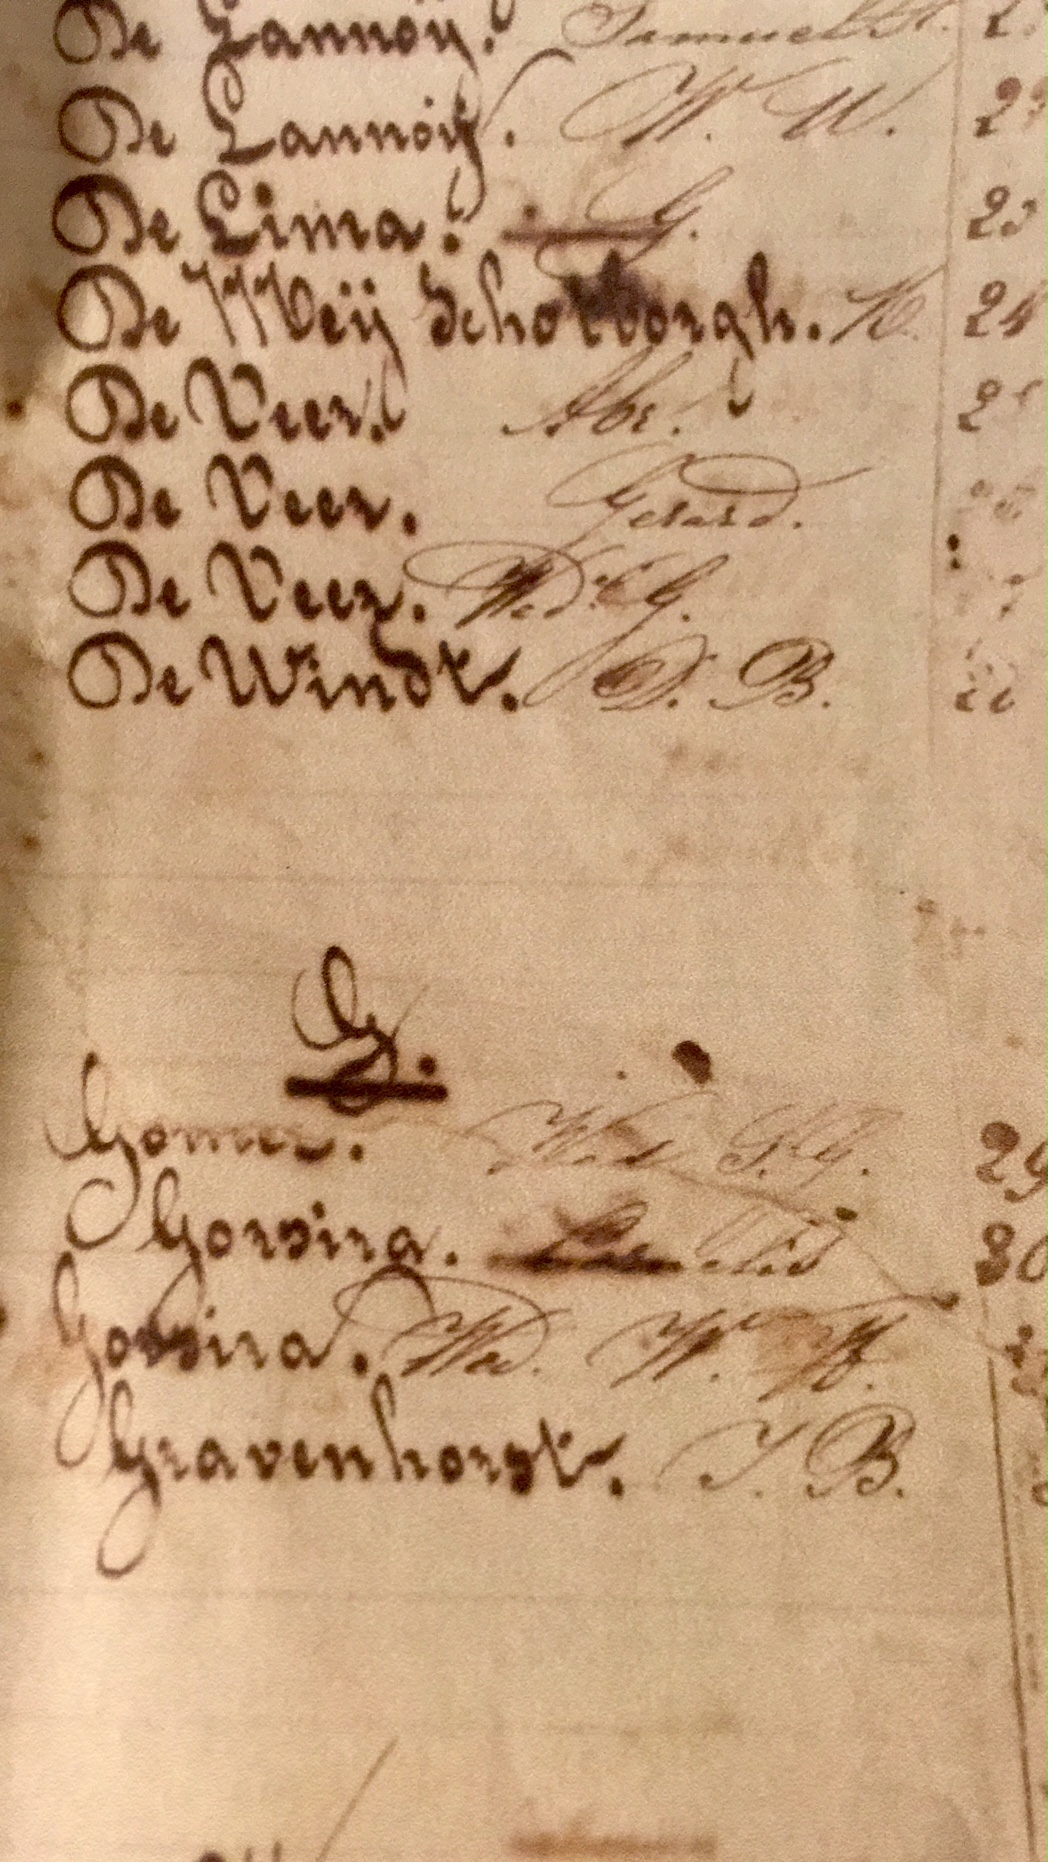 De Lannoij. Samuel
De Lannoij. W. W.
De Lima. G. 23
De Meij Schotborgh. 24
De Veer. Abr.
De Veer. Gerard.
De Veer. Wed. G.
De Windt. D. B.
G.
Gomez. Wed 29
Gorsira. 30
Gorsira. Wed. W.
Gravenhorst. J. B.